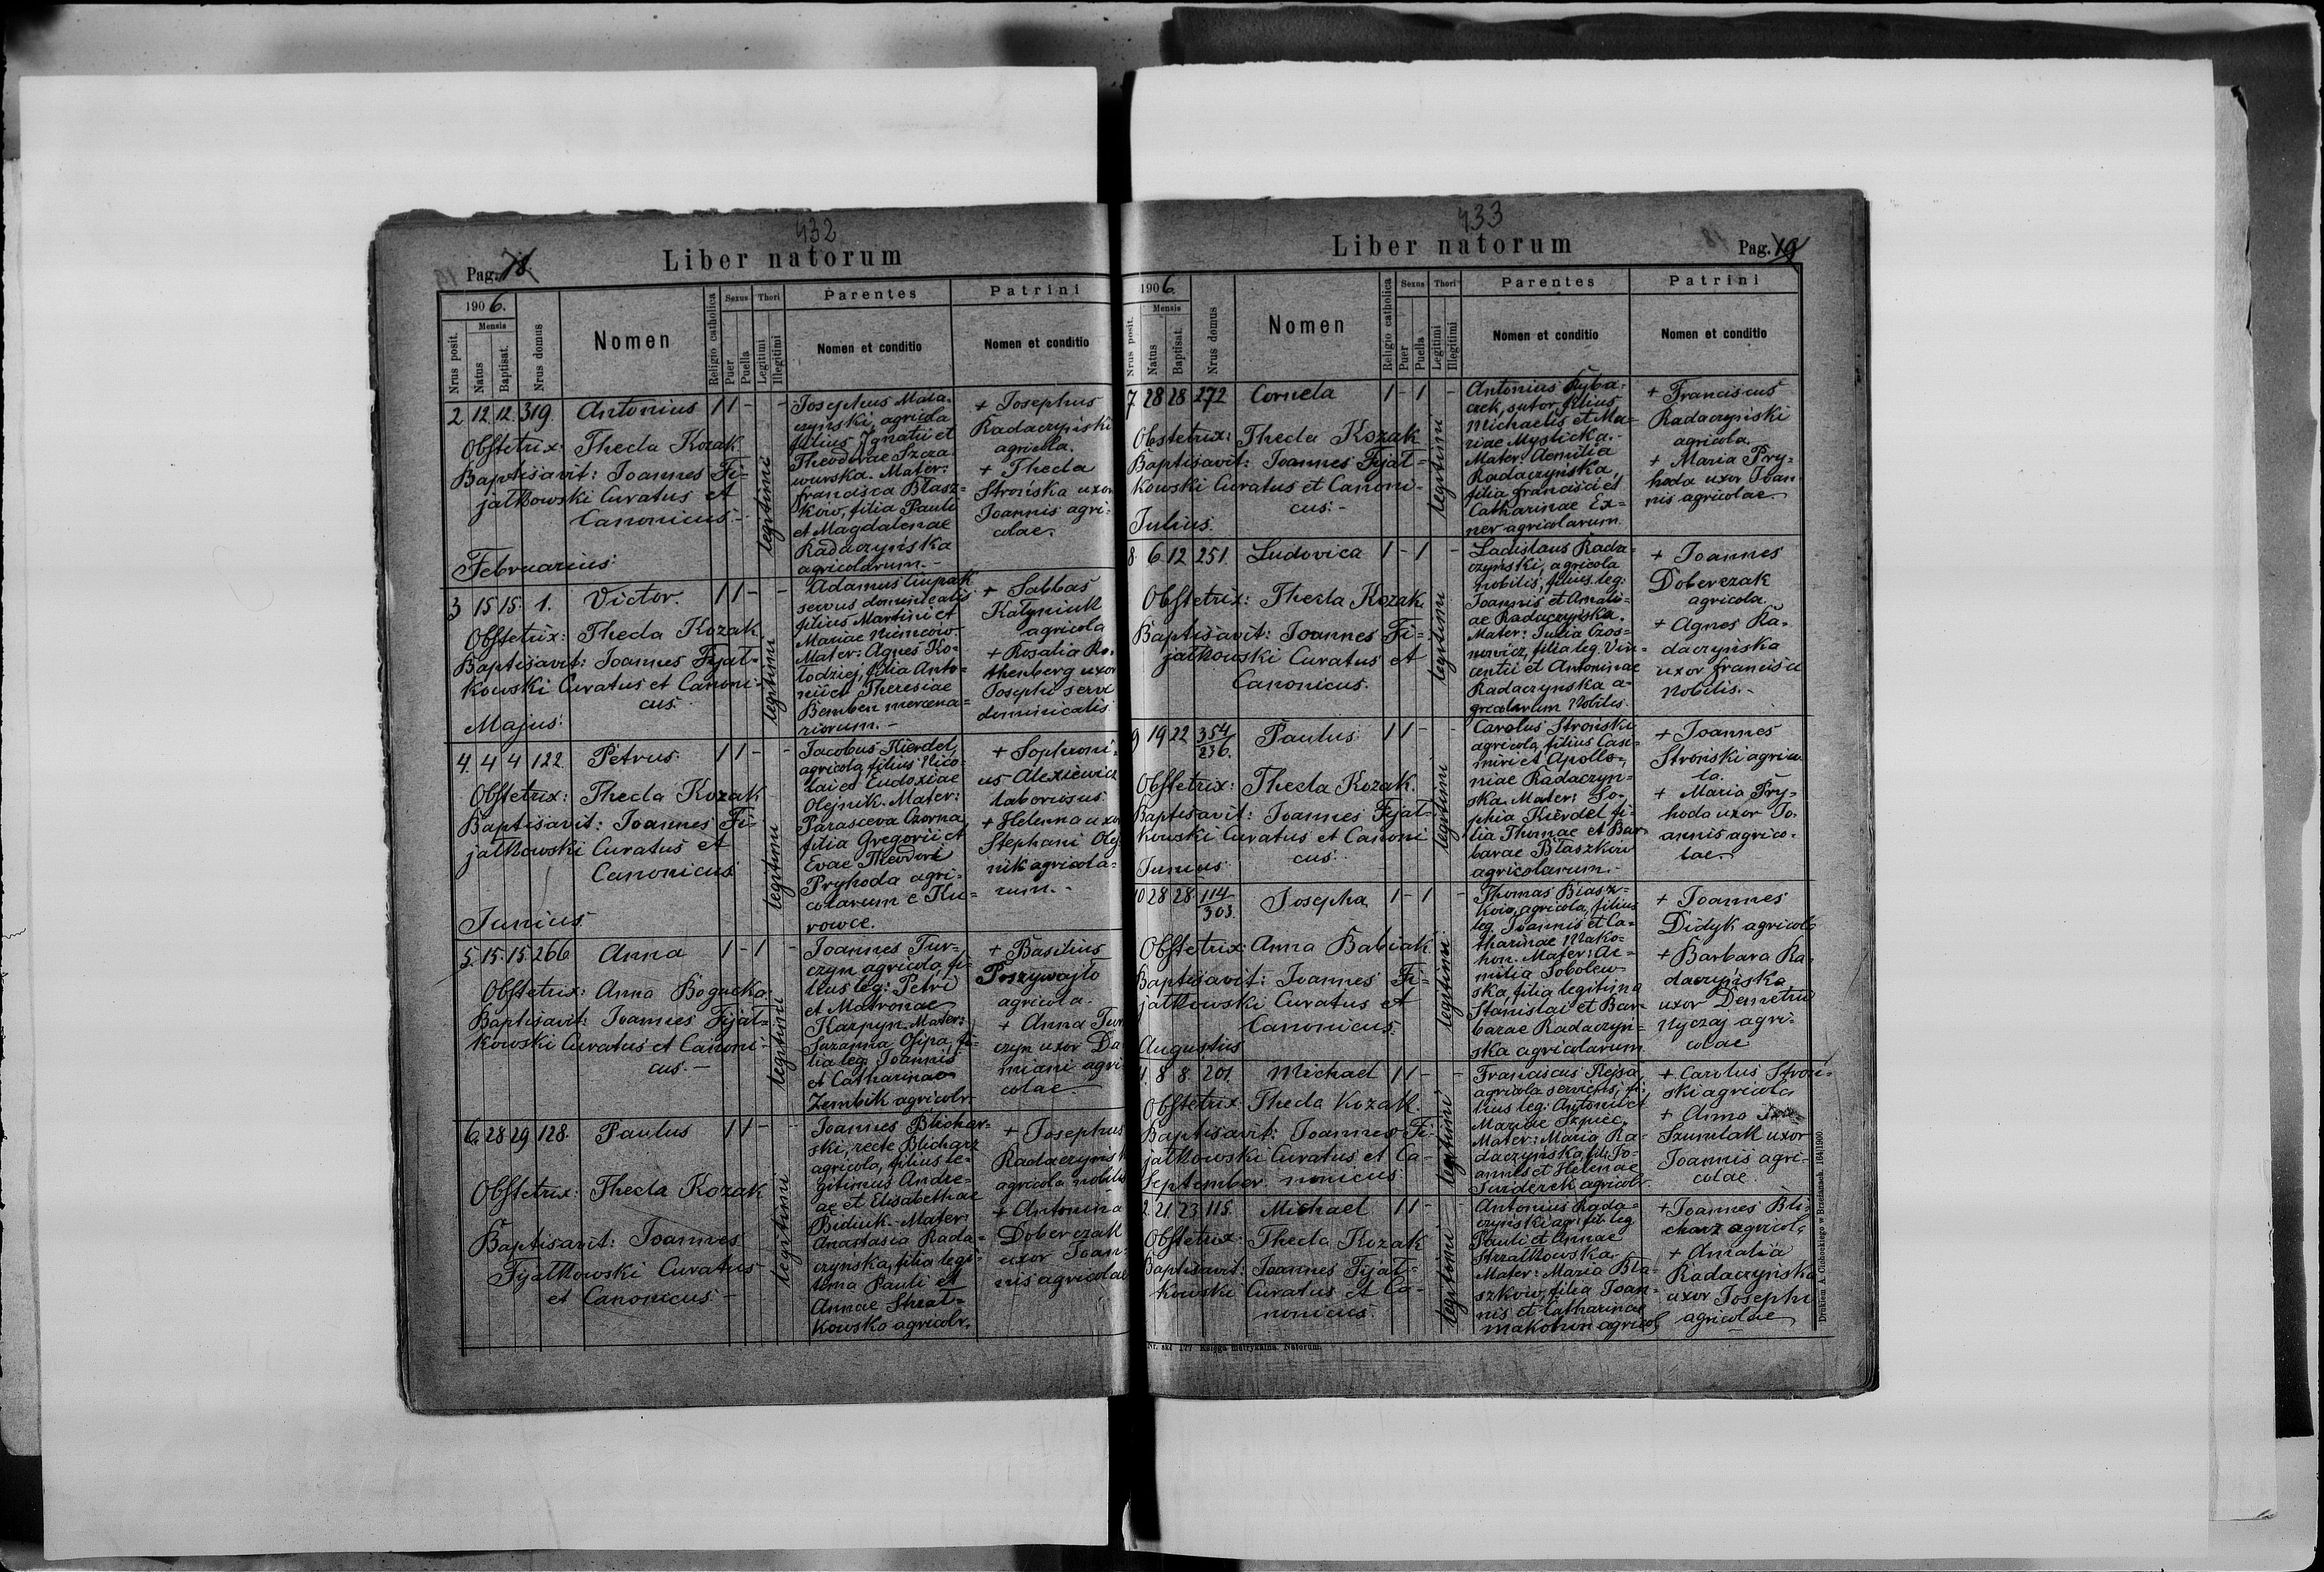 432
Pag. 18
Liber natorum
1906.
Nrus posit.
Mensis
Natus
Baptisat.
Nrus domus
Nomen
Religio catholica
Sexus
Puer
Puella
Thori
Legitimi
Illegitimi
Parentes
Nomen et conditio
Patrini
Nomen et conditio
2 12. 12. 319. Antonius 1 1 - -
Obstetrix: Thecla Kozak
Baptisavit: Joannes Fi-
jałkowski Curatus et
Canonicus.-
legitimi
Josephus Mala-
czyński, agricola
filius Ignatii et
Theodorae Szcza-
wurska. Mater:
Francisca Błasz-
ków, filia Pauli
et Magdalenae
Radaczyńska
agricolarum.-
+ Josephus
Radaczyński
agricola.
+ Thecla
Strońska uxor
Joannis agri-
colae.
Februarius:
3 15 15. 1. Victor. 1 1 - -
Obstetrix: Thecla Kozak.
Baptisavit: Joannes Fijał-
kowski Curatus et Canoni-
cus.
legitimi
Adamus Ciupak
servus dominicalis
filius Martini et
Mariae Niemców.
Mater: Agnes Ko-
łodziej, filia Anto-
nii et Theresiae
Bemben mercena-
riorum.-
+ Sabbas
Katyniuk
agricola
+ Rosalia Ro-
thenberg uxor
Josephi servi
dominicalis
Majus:
4. 4 4 122. Petrus. 1 1 - -
Obstetrix: Thecla Kozak
Baptisavit: Joannes Fi-
jałkowski Curatus et
Canonicus
legitimi
Jacobus Kierdel,
agricola, filius Nico-
lai et Eudoxiae
Olejnik. Mater:
Parasceva Czorna,
filia Gregorii et
Evae Theodori
Pryhoda agri-
colarum e Ku-
rowce.
+ Sophroni-
us Alexiewicz
laboriosus
+ Helenna uxor
Stephani Olej-
nik agricola-
rum.-
Junius.
5. 15. 15. 266 Anna 1 - 1 -
Obstetrix: Anna Bogucka
Baptisavit: Joannes Fijał-
kowski Curatus et Canoni-
cus.-
legitimi
Joannes Tur-
czyn agricola, fi-
lius leg: Petri
et Matronae
Karpyn. Mater:
Suzanna Osipa, fi-
lia leg. Joannis
et Catharinae
Zembik agricolr.
+ Basilius
Poszywajło
agricola.
+ Anna Tur
czyn uxor Da
miani agri
colae
6. 28 29 128. Paulus 1 1 - -
Obstetrix: Thecla Kozak
Baptisavit: Joannes
Fijałkowski Curatus
et Canonicus-
legitimi
Joannes Blichar-
ski, recte Blicharz
agricola, filius le-
gitimus Andre-
ae et Elisabethae
Bidiuk. Mater:
Anastasia Rada-
czyńska, filia legi-
tima Pauli et
Annae Strzał-
kowska agricolr.
+ Josephus
Radaczyńsk
agricola nobilis
+ Antonina
Doberczak
uxor Joan-
nis agricolae
433
Liber natorum
Pag. 19
1906.
Nrus posit.
Mensis
Natus
Baptisat.
Nrus domus
Nomen
Religio catholica
Sexus
Puer
Puella
Thori
Legitimi
Illegitimi
Parentes
Nomen et conditio
Patrini
Nomen et conditio
7 28 28 272 Cornela 1 - 1 -
Obstetrix: Thecla Kozak
Baptisavit: Joannes Fijał-
kowski Curatus et Canoni-
cus.-
legitimi
Antonius Ryba-
czek, sutor filius
Michaelis et Ma-
riae Myslicka.-
Mater: Aemilia
Radaczyńska,
filia Francisci et
Catharinae Ex-
ner agricolarum.
+ Franciscus
Radaczyński
agricola.
+ Maria Pry-
hoda uxor Joan
nis agricolae
Julius.
8. 6 12 251. Ludovica 1 - 1 -
Obstetrix: Thecla Kozak.
Baptisavit: Joannes Fi-
jałkowski Curatus et
Canonicus.
legitimi
Ladislaus Rada-
czyński, agricola
nobilis, filius leg:
Joannis et Amali-
ae Radaczyńska.
Mater: Julia Czos-
nowicz, filia leg. Vin-
centii et Antoninae
Radaczynska a-
gricolarum Nobiles.
+ Joannes
Doberczak
agricola.
+ Agnes Ra-
daczyńska
uxor Francisci
Nobilis.-
9 19 22 354/236. Paulus 1 1 - -
Obstetrix: Thecla Kozak.
Baptisavit: Joannes Fijał-
kowski Curatus et Canoni
cus.
legitimi
Carolus Stroński
agricola, filius Casi-
miri et Apollo-
niae Radaczyn-
ska. Mater: So-
phia Kierdel fi-
lia Thomae et Bar-
barae Błaszków
agricolarum.-
+ Joannes
Stroński agrico-
la.
+ Maria Pry-
hoda uxor Jo-
annis agrico-
lae.
Junius.
10 28 28 114/303. Josepha 1 - 1 -
Obstetrix: Anna Babiak.
Baptisavit: Joannes Fi-
jałkowski Curatus et
Canonicus.
legitimi
Thomas Błasz-
ków, agricola, filius
leg. Joannis et Ca-
tharinae Mako-
hon. Mater: Ae-
milia Sobolew-
ska, filia legitima
Stanislai et Bar-
barae Radaczyń-
ska agricolarum
+ Joannes
Didyk agricola
+ Barbara Ra-
daczyńska
uxor Demetrii
Nyczaj agri-
colae
Augustus
11. 8 8. 201. Michael 1 1 - -
Obstetrix: Thecla Kozak.
Baptisavit: Joannes Fi-
jałkowski Curatus et Ca-
nonicus
legitimi
Franciscus
agricola serviens, fi-
lius leg: Antonii et
Mariae Szpiec.
Mater: Maria Ra-
daczyńska, fil: Jo-
annis et Helenae
agricolr.
+ Carolus Stroń-
ski agricola
+ Anna
Szumlak uxor
Joannis agri-
colae
September
12. 21 23 115. Michael 1 1 - -
Obstetrix: Thecla Kozak
Baptisavit: Joannes Fijał-
kowski Curatus et Ca-
nonicus.
legitimi
Antonius Rada-
czyński agr: fil. leg.
Pauli et Annae
Strzałkowska.
Mater: Maria Bła-
szków, filia Joan-
nis et Catharinae
Makohon agricol.
+ Joannes Bli-
charz agricola
+ Amalia
Radaczyńska
uxor Josephi
agricolae
Księga matrykalna. Natorum.